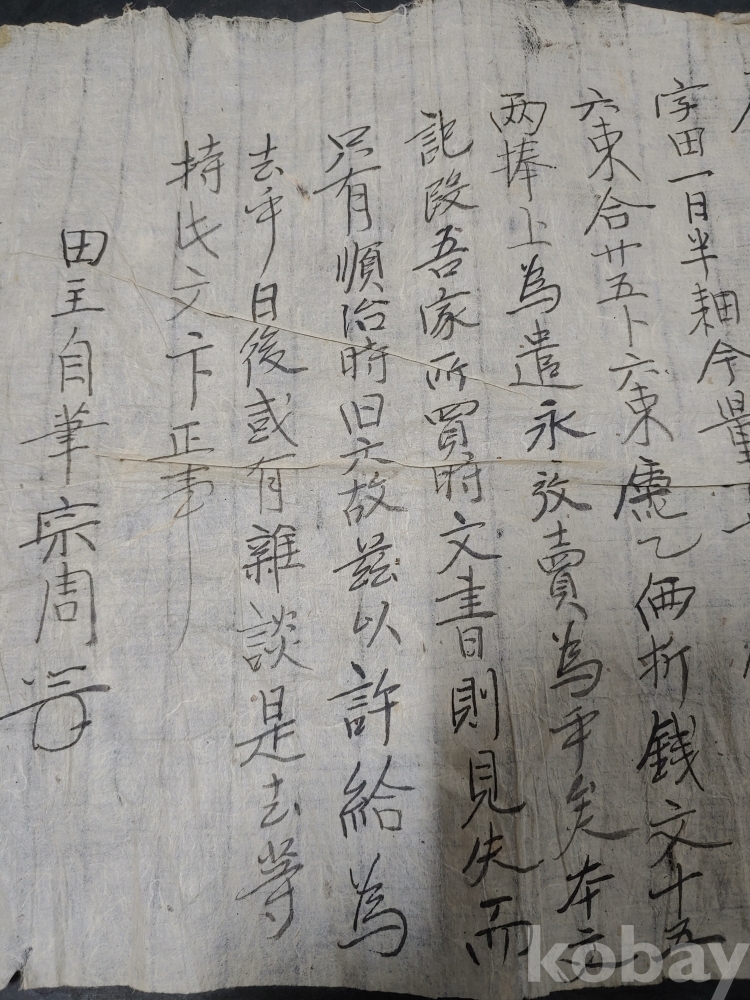 字田一日半耕今量
六束合廿五卜六束庫乙価折錢文十五
両捧上為遣永放賣為乎矣本文
記段吾家所買時文書則見失而
只有順治時旧文故玆以許給為
去乎日後或有雜談是去等
持此文卞正事
田主自筆宗周
kobay